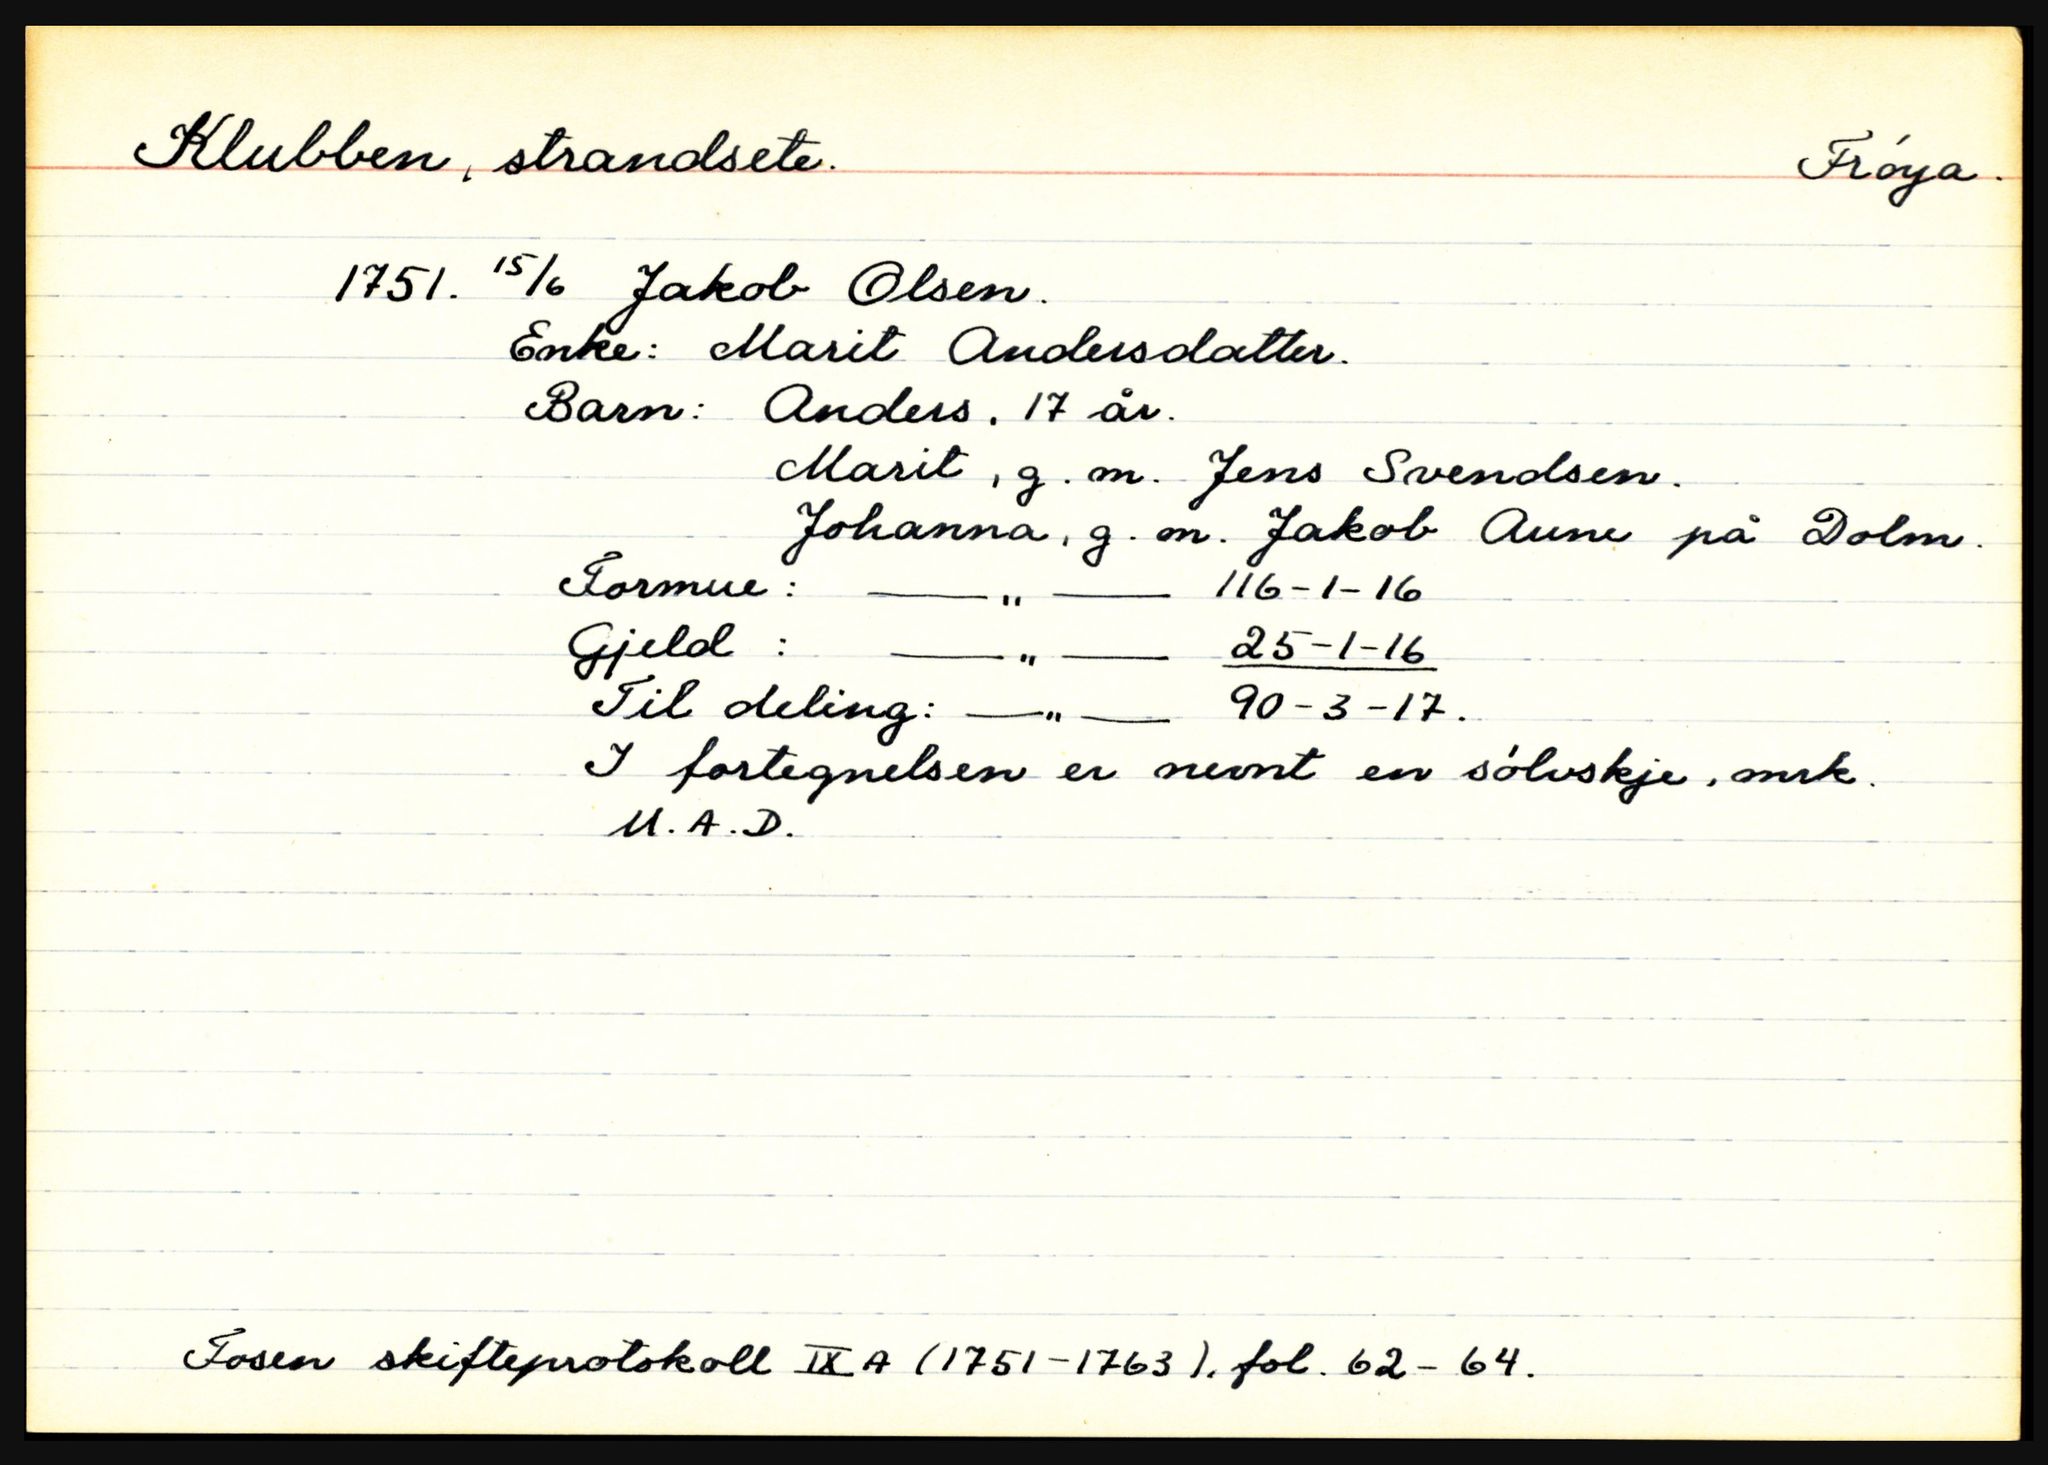 Klubben, strandsete. Frøya.
1751. 15/6 Jakob Olsen.
Enke: Marit Andersdatter.
Barn: Anders, 17 år.
Marit, g. m. Jens Svendsen.
Johanna, g. m. Jakob Aune på Dolm.
Formue: —„— 116-1-16
Gjeld : —„— 25-1-16
Til deling: —„— 90-3-17.
I fortegnelsen er nevnt en sølvskje, mrk.
M. A. D.
Fosen skifteprotokoll IX A (1751-1763), fol. 62-64.